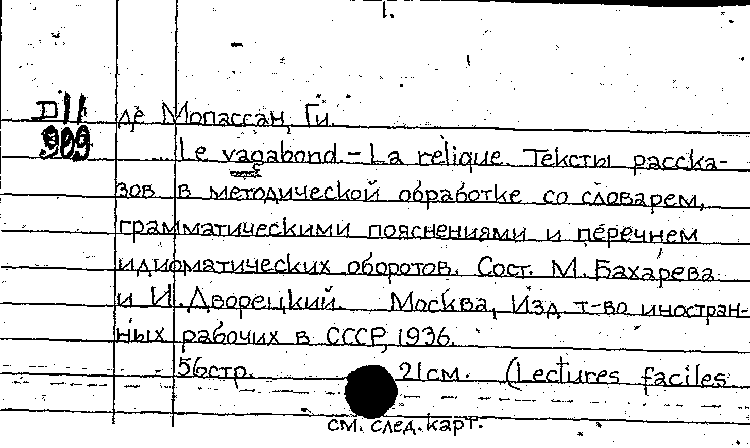 D11 де Мопассан, Ги.
909 Le vagabond. – La relique. Тексты расска-
зов в методической обработке со словарем,
грамматическими пояснениями и перечнем
идиоматических оборотов. Сост. М. Бахарева
и И. Дворецкий. Москва, Изд. т-во иностран-
ных рабочих в СССР, 1936.
56стр. 21см. (Lectures faciles
см. след. карт.